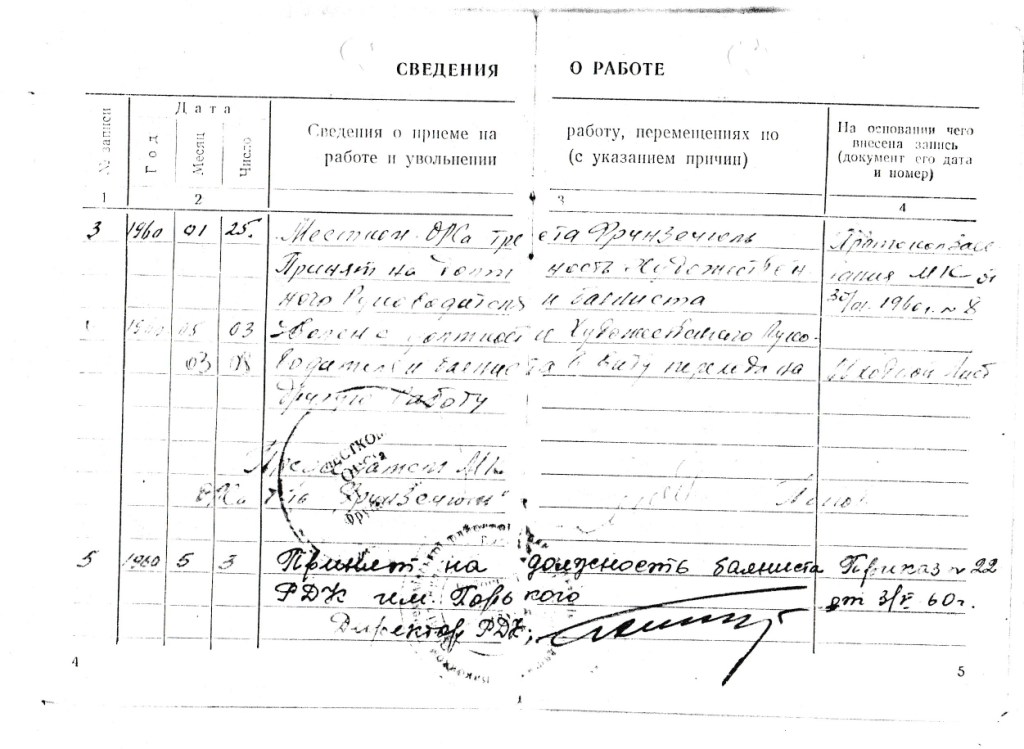 СВЕДЕНИЯ О РАБОТЕ
№ записи
Дата
Год
Месяц
Число
Сведения о приеме на работу, перемещениях по
работе и увольнении (с указанием причин)
На основании чего
внесена запись
(документ его дата
и номер)
1 2 3 4
3 1960 01 25. Местком ОРСа треста Фрунзеуголь
Принят на должность Художествен
ного Руководителя и баяниста
Протокол засе
дания МК от
1960г. № 8
05 03 Уволен с должности Художественного Руко-
03 08 водителя и баяниста в виду перехода на
другую работу
Обходной Лист
Председатель МК
ОРСа Фрунзеуголь"
МЕСТКОМ
5 1960 5 3 Принят на должность баяниста
РДК им Горького
Приказ № 22
от 3/V 60г.
Директор РДК,
4 5